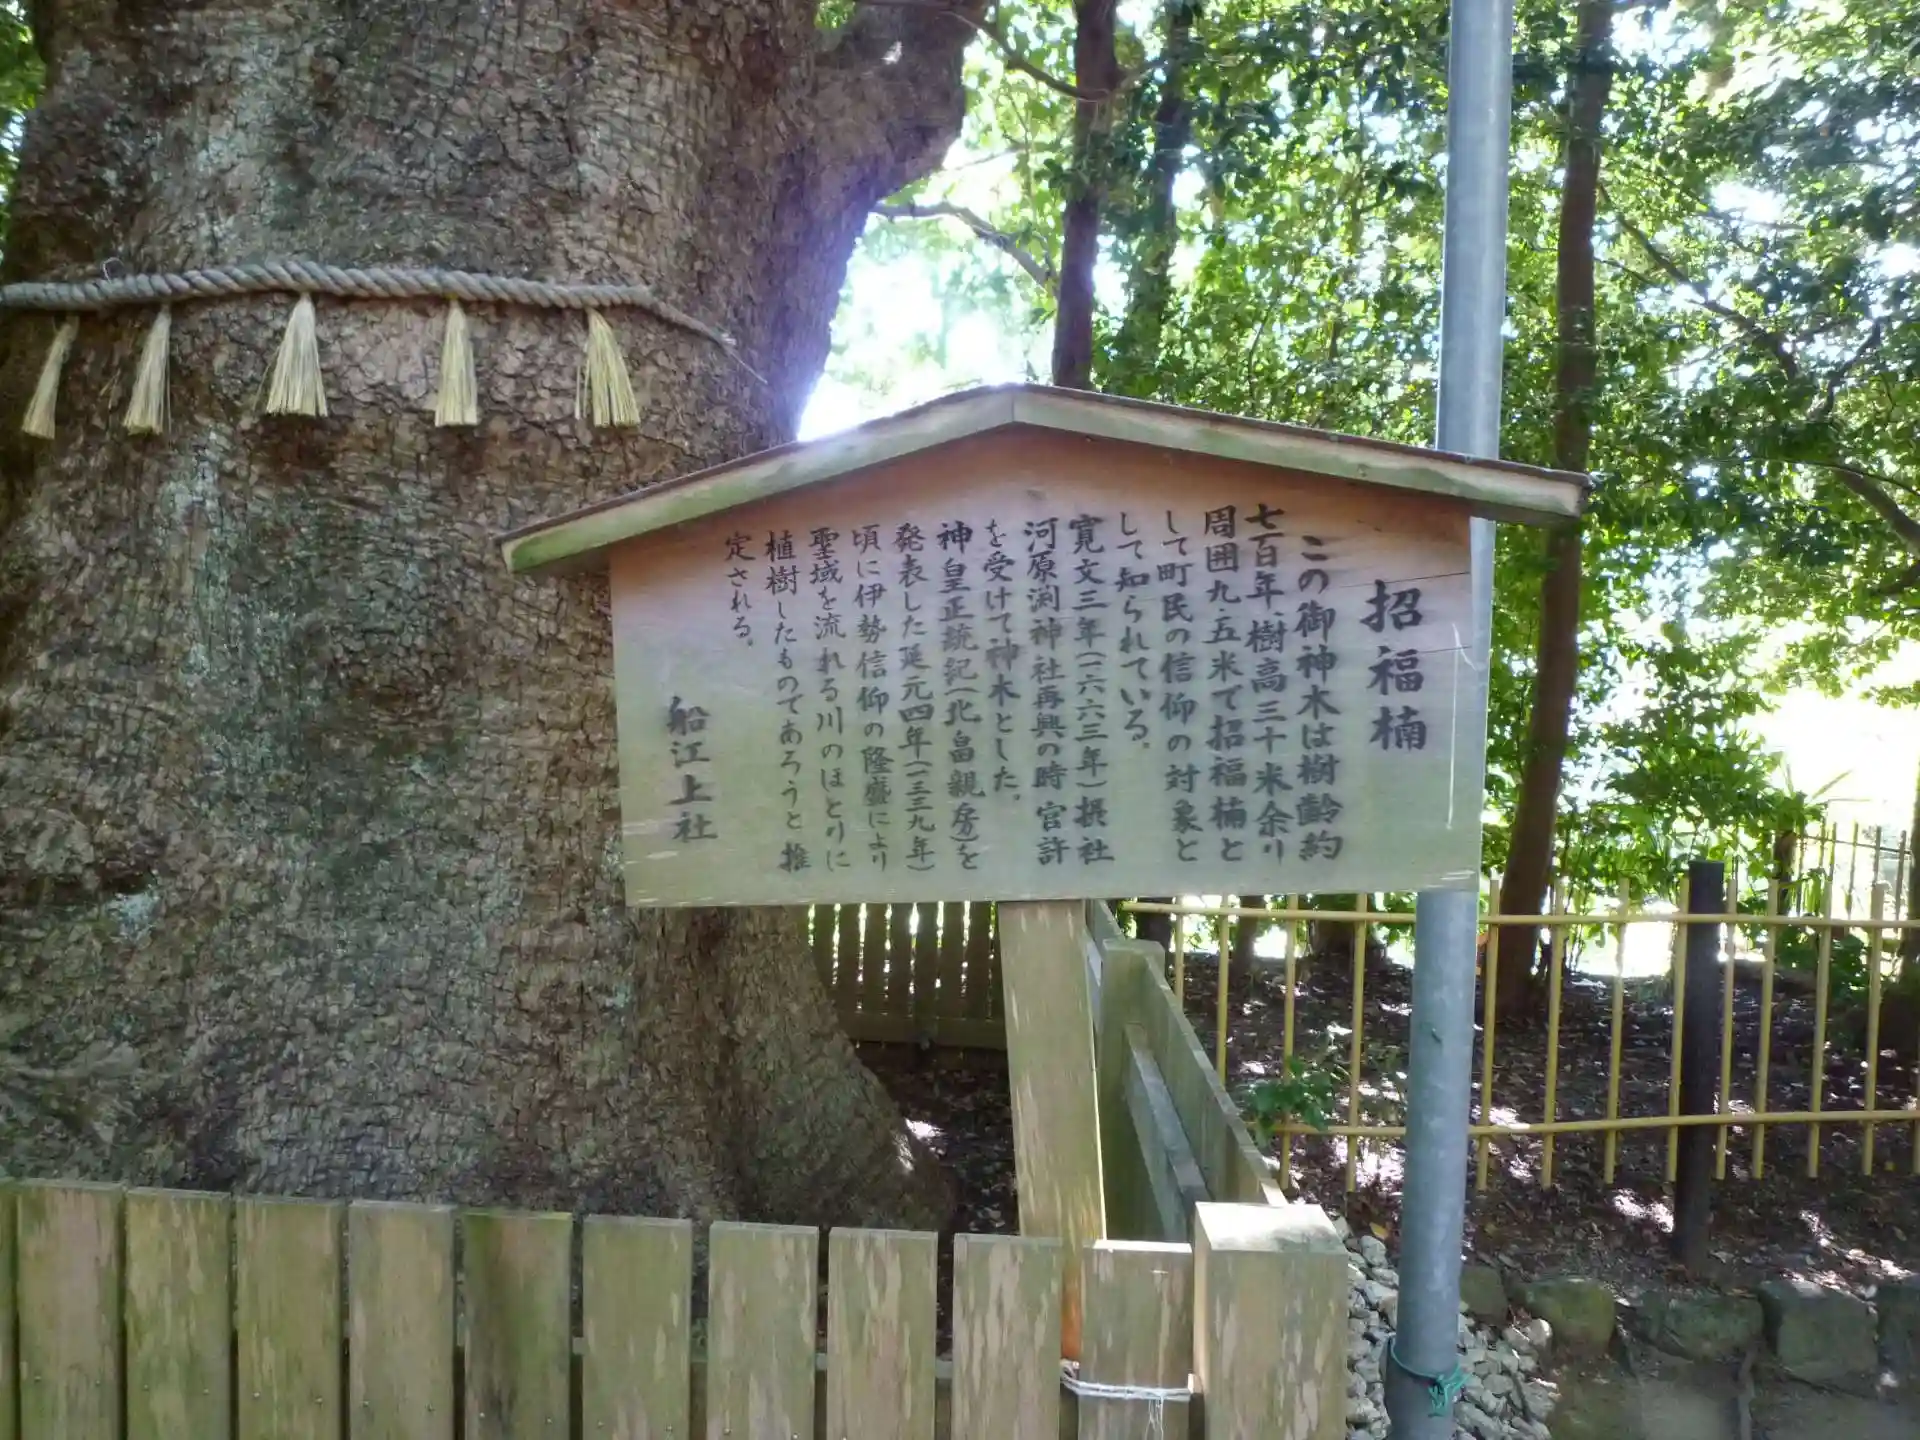 招福楠
この御神木は樹齢約
七百年、樹高三十米余り
周囲九・五米で招福楠と
して町民の信仰の対象と
して知られている。
寛文三年(一六六三年)摂社
河原渕神社再興の時官許
を受けて神木とした。
神皇正統記(北畠親房)を
発表した延元四年(一三三九年)
頃に伊勢信仰の隆盛により
聖域を流れる川のほとりに
植樹したものであろうと推
定される。
船江上社